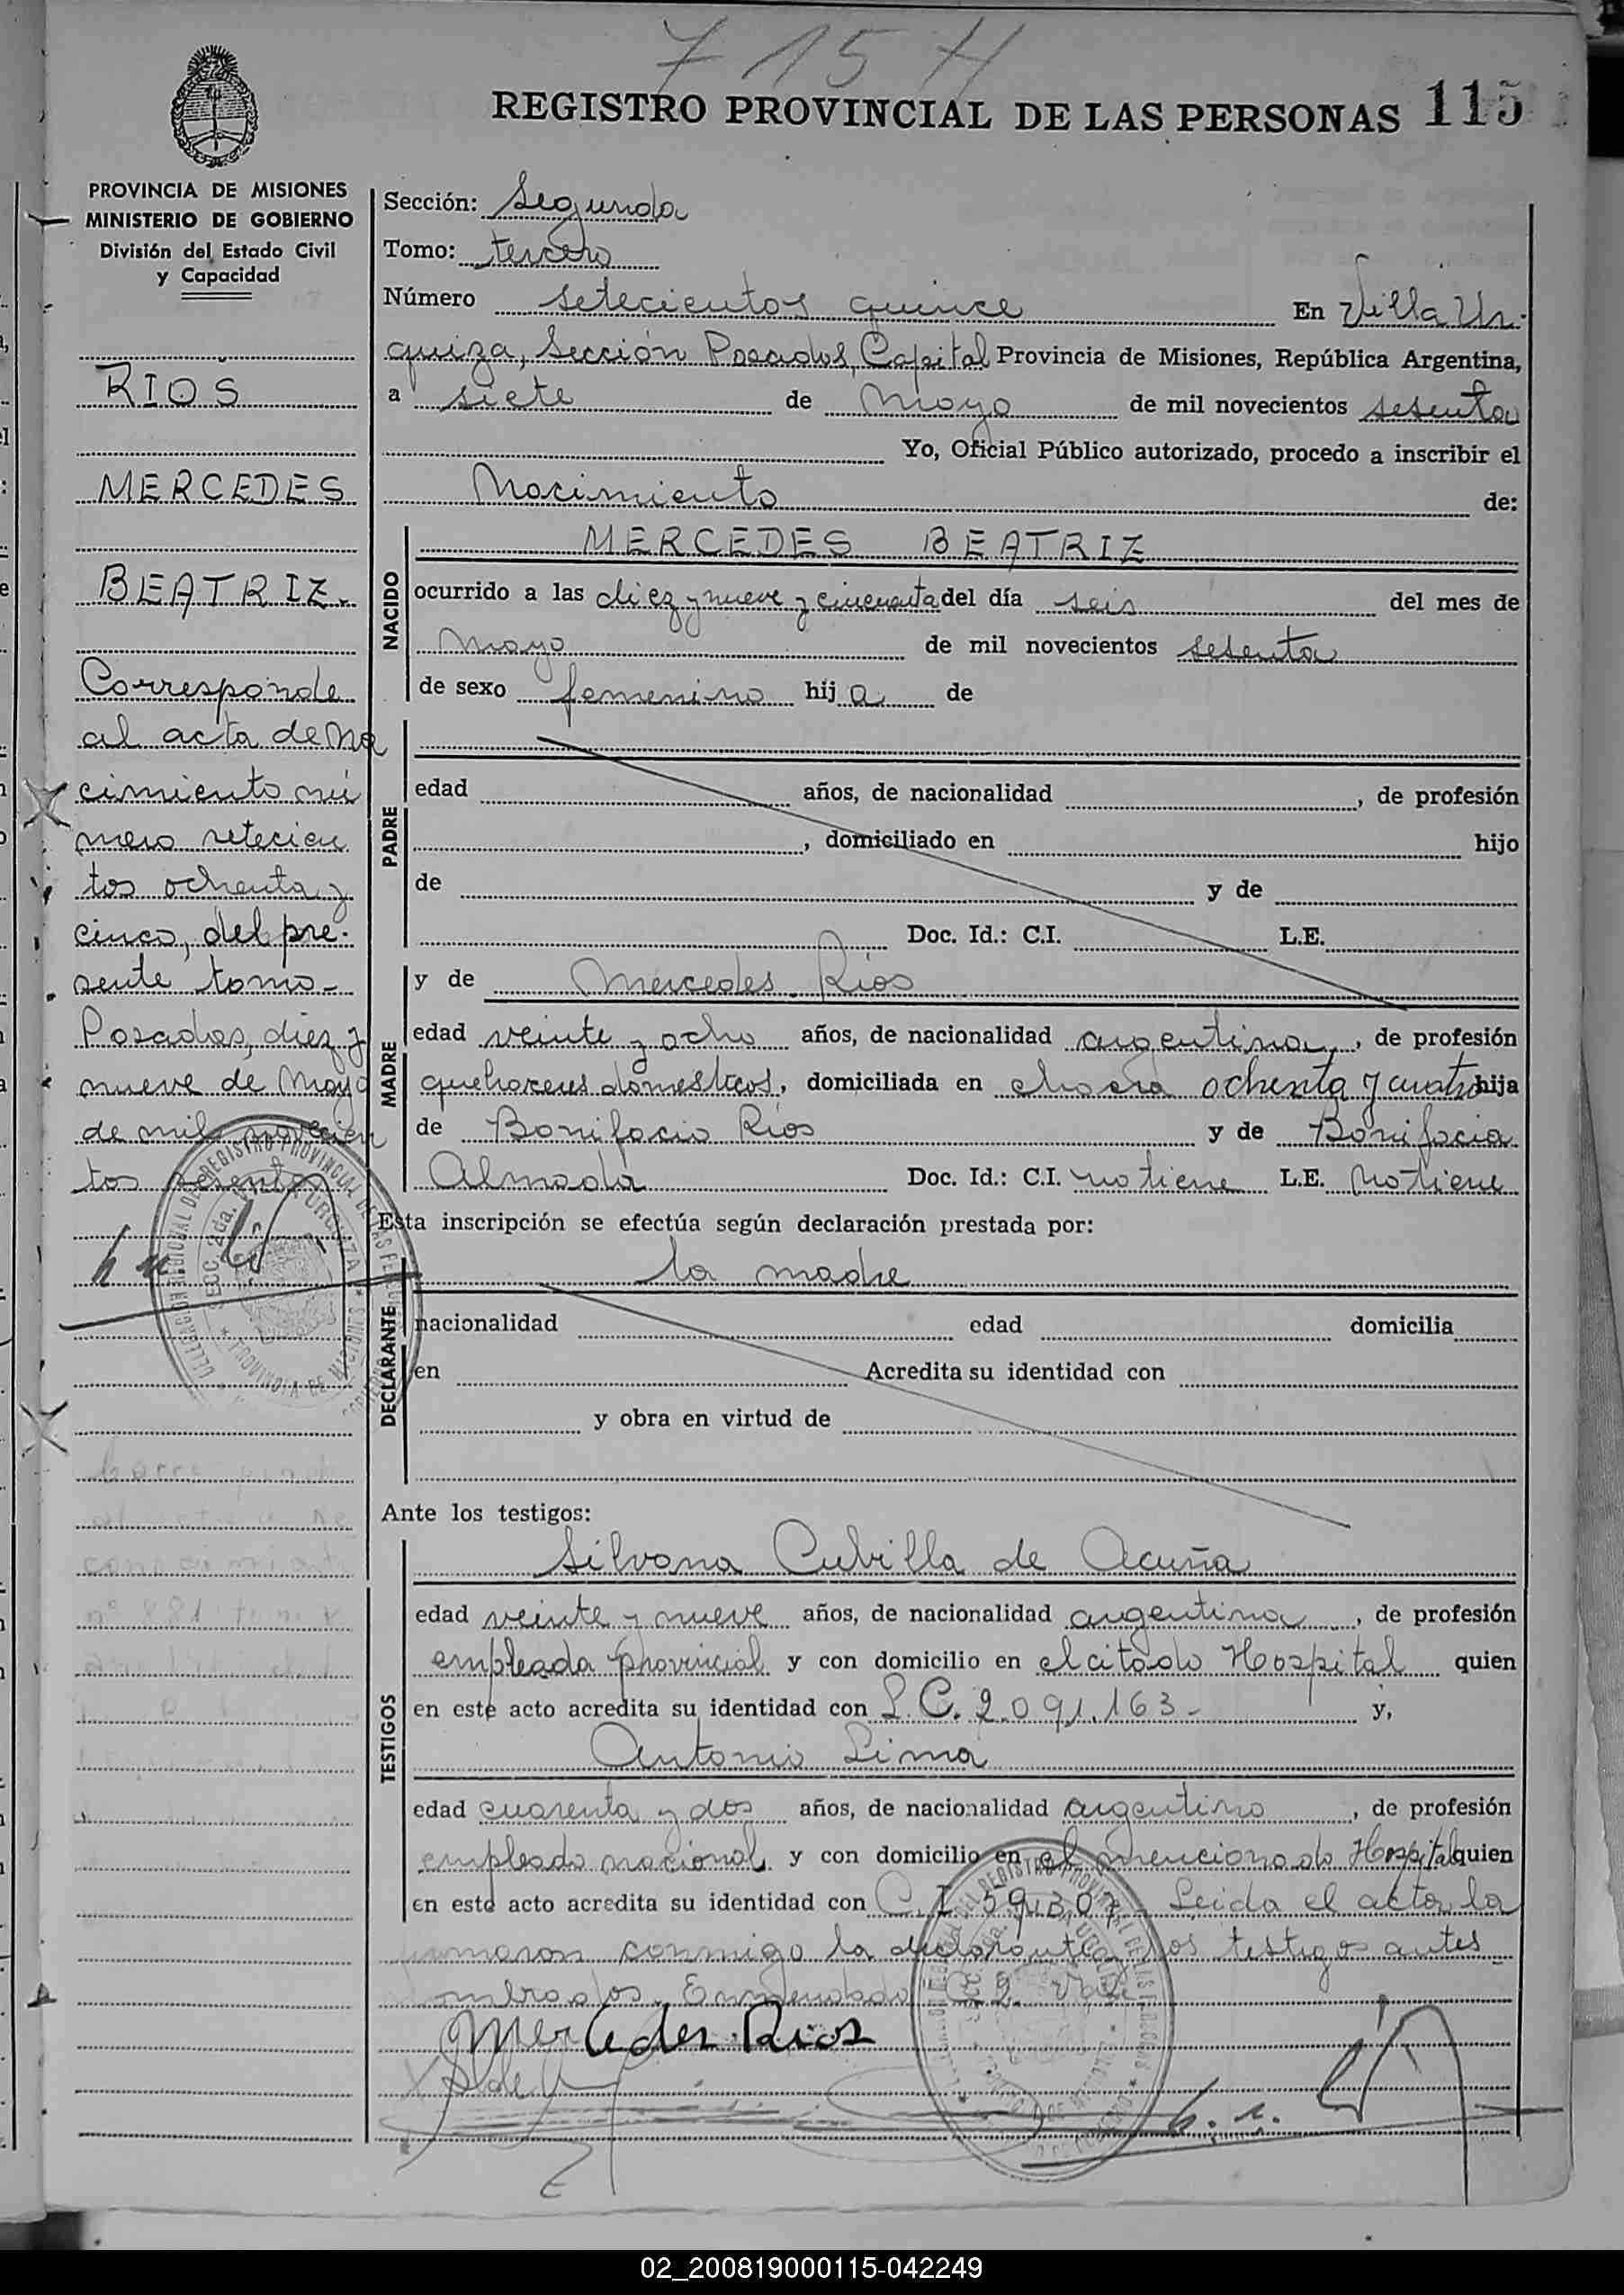 7 15 H
REGISTRO PROVINCIAL DE LAS PERSONAS 115
PROVINCIA DE MISIONES
MINISTERIO DE GOBIERNO
División del Estado Civil
y Capacidad
RIOS
MERCEDES
BEATRIZ.
Corresponde
al acta de na
cimiento nú
mero setecien
tos ochenta y
cinco, del pre-
sente tomo-
Posadas, diez y
nueve de Mayo
de mil novecien
tos setenta
Sección: Segunda
Tomo: tercero
Número setecientos quince En Villa Ur-
quiza, Sección Posadas, Capital Provincia de Misiones, República Argentina,
a siete de mayo de mil novecientos setenta
Yo, Oficial Público autorizado, procedo a inscribir el
Nacimiento de:
NACIDO
MERCEDES BEATRIZ
ocurrido a las diez y nueve y cincuenta del día seis del mes de
mayo de mil novecientos setenta
de sexo femenino hija de
PADRE
edad años, de nacionalidad , de profesión
, domiciliado en hijo
de y de
Doc. Id.: C.I. L.E.
MADRE
y de Mercedes Ríos
edad veinte y ocho años, de nacionalidad argentina, de profesión
quehaceres domésticos, domiciliada en chacra ochenta y cuatro hija
de Bonifacio Ríos y de Bonifacia
Almada Doc. Id.: C.I. no tiene L.E. no tiene
Esta inscripción se efectúa según declaración prestada por:
DECLARANTE
la madre
nacionalidad edad domicilia
en Acredita su identidad con
y obra en virtud de
Ante los testigos:
TESTIGOS
Silvana Cubilla de Acuña
edad veinte y nueve años, de nacionalidad argentina, de profesión
empleada provincial y con domicilio en el citado Hospital quien
en este acto acredita su identidad con L.C. 2.091.163- y,
Antonio Lima
edad cuarenta y dos años, de nacionalidad argentino, de profesión
empleado nacional y con domicilio en el mencionado Hospital quien
en este acto acredita su identidad con C.I. 59.307- Leida el acta la
firmaron conmigo la declarante y los testigos antes
nombrados. Enmendado
Mercedes Rios
02_200819000115-042249